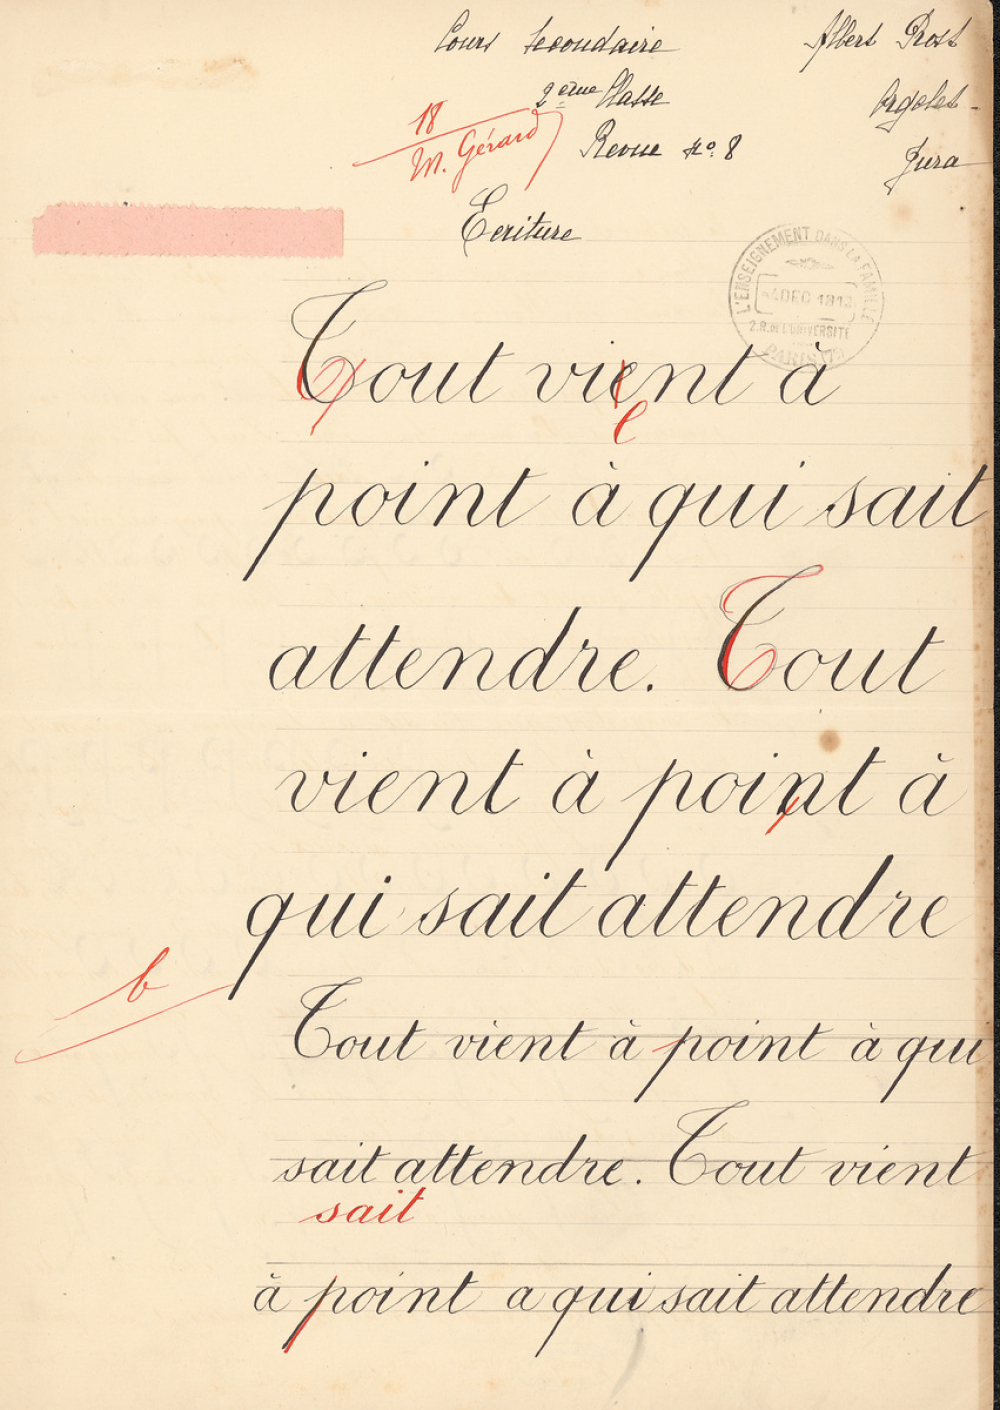 Cours Secondaire
Albert Prost
2ème Classe
Orgelet-
18
M. Gérard
Revue No. 8
Jura
Ecriture
L'ENSEIGNEMENT DANS LA FAMILLE
4 DEC 1912
2.R. DE L'UNIVERSITÉ
PARIS (7e)
Tout vient à
e
point à qui sait
attendre. Tout
vient à point à
qui sait attendre
b
Tout vient à point à qui
sait attendre. Tout vient
sait
à point a qui sait attendre